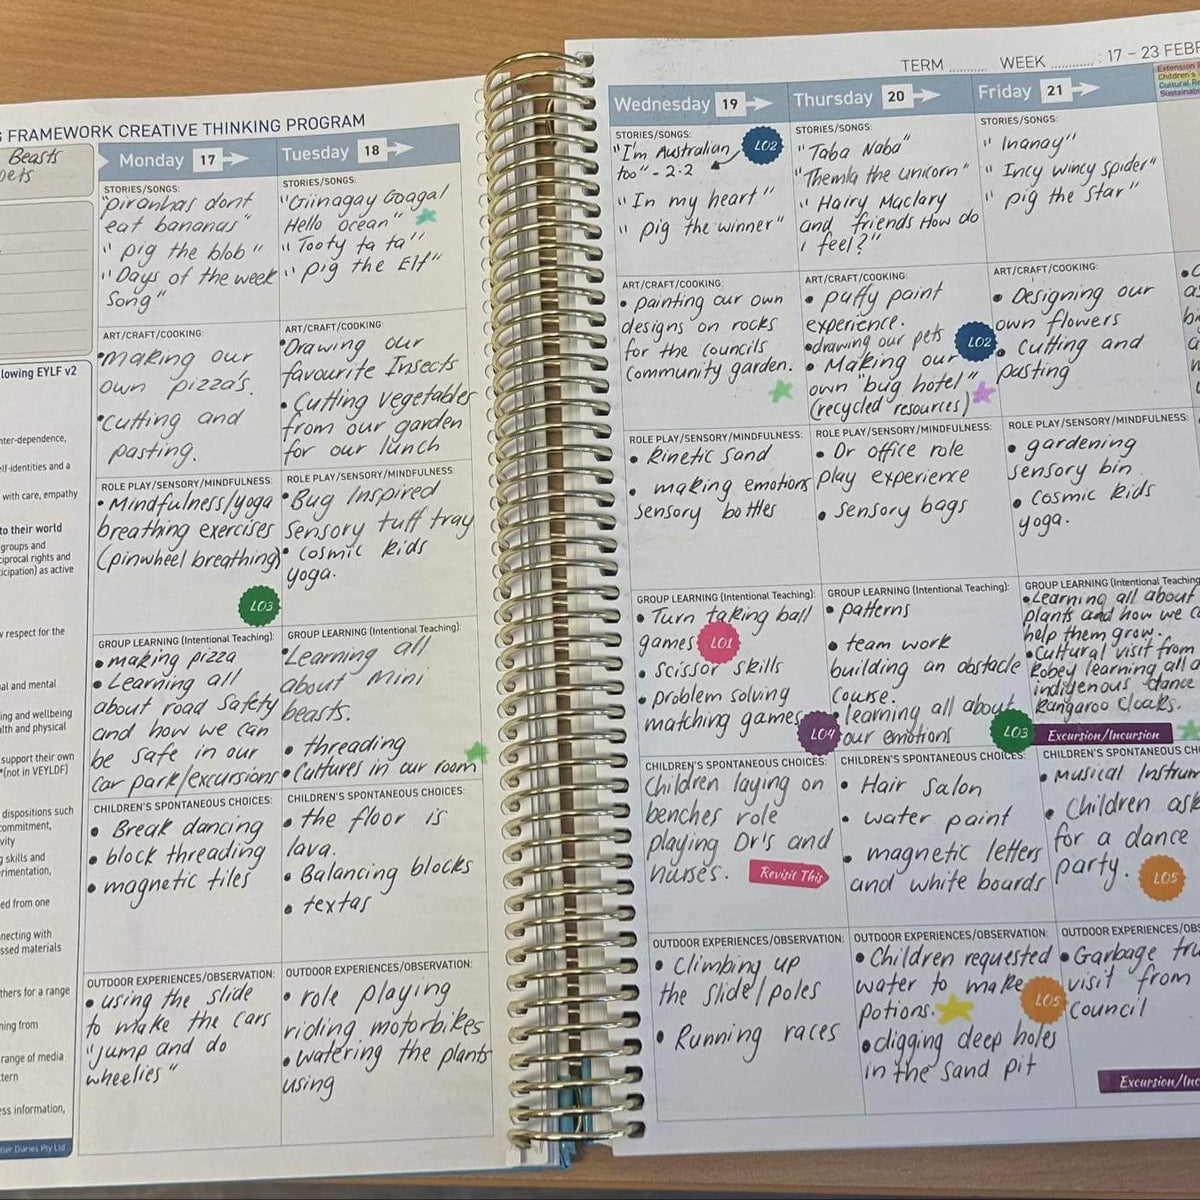 FRAMEWORK CREATIVE THINKING PROGRAM
Beasts
Monday 17
STORIES/SONGS:
"piranhas dont
eat bananas"
"pig the blob"
"Days of the week
song"
ART/CRAFT/COOKING:
•making our
own pizza's.
•cutting and
pasting.
ROLE PLAY/SENSORY/MINDFULNESS:
•Mindfulness/yoga
breathing exercises
(pinwheel breathing)
LO3
GROUP LEARNING (Intentional Teaching):
•making pizza
•Learning all
about road safety
and how we can
be safe in our
car park/excursions
CHILDREN'S SPONTANEOUS CHOICES:
• Break dancing
• block threading
• magnetic tiles
OUTDOOR EXPERIENCES/OBSERVATION:
• using the slide
to make the cars
"jump and do
wheelies"
Tuesday 18
STORIES/SONGS:
"Giinagay Gaagal
Hello ocean"
"Tooty ta ta"
"pig the Elf"
ART/CRAFT/COOKING
•Drawing our
favourite Insects
• Cutting vegetables
from our garden
for our lunch
ROLE PLAY/SENSORY/MINDFULNESS:
• Bug Inspired
sensory tuff tray
• cosmic kids
yoga.
GROUP LEARNING (Intentional Teaching):
•Learning all
about Mini
beasts.
• threading
• Cultures in our room
CHILDREN'S SPONTANEOUS CHOICES:
• the floor is
lava.
• Balancing blocks
• textas
OUTDOOR EXPERIENCES/OBSERVATION:
• role playing
riding motorbikes
•watering the plants
using
lowing EYLF v2
nter-dependence,
elf-identities and a
with care, empathy
to their world
groups and
ciprocal rights and
icipation) as active
respect for the
al and mental
ing and wellbeing
alth and physical
support their own
*(not in VEYLDF)
dispositions such
commitment,
vity
skills and
rimentation,
ed from one
nnecting with
ssed materials
thers for a range
ning from
range of media
tern
ess information,
Diaries Pty Ltd
TERM .......... WEEK ............ : 17 – 23 FEBR
Wednesday 19
STORIES/SONGS:
"I'm Australian
too" - 2.2
LO2
"In my heart"
"pig the winner"
ART/CRAFT/COOKING:
• painting our own
designs on rocks
for the councils
community garden.
ROLE PLAY/SENSORY/MINDFULNESS:
• kinetic sand
• making emotions
sensory bottles
GROUP LEARNING (Intentional Teaching):
• Turn taking ball
games
LO1
• scissor skills
• problem solving
matching games
LO4
CHILDREN'S SPONTANEOUS CHOICES:
Children laying on
benches role
playing Dr's and
nurses.
Revisit This
OUTDOOR EXPERIENCES/OBSERVATION:
• Climbing up
the slide/poles
• Running races
Thursday 20
STORIES/SONGS:
"Taba Naba"
"Themla the unicorn"
"Hairy Maclary
and friends How do
i feel?"
ART/CRAFT/COOKING:
• puffy paint
experience.
•drawing our pets
LO2
• Making our
own "bug hotel"
(recycled resources)
ROLE PLAY/SENSORY/MINDFULNESS:
• Dr office role
play experience
• sensory bags
GROUP LEARNING (Intentional Teaching):
• patterns
• team work
building an obstacle
course.
•learning all about
our emotions
LO3
CHILDREN'S SPONTANEOUS CHOICES:
• Hair salon
• water paint
• magnetic letters
and white boards
OUTDOOR EXPERIENCES/OBSERVATION:
• Children requested
water to make
potions.
LO5
•digging deep holes
in the sand pit
Friday 21
STORIES/SONGS:
"Inanay"
"Incy wincy spider"
"pig the star"
ART/CRAFT/COOKING:
• Designing our
own flowers
• cutting and
pasting
ROLE PLAY/SENSORY/MINDFULNESS:
• gardening
sensory bin
• cosmic kids
yoga.
GROUP LEARNING (Intentional Teaching
•Learning all about
plants and how we c
help them grow.
•Cultural visit from
Kobey learning all a
indigenous dance
kangaroo cloaks.
Excursion/Incursion
CHILDREN'S SPONTANEOUS CH
• Musical Instrum
• Children ask
for a dance
party.
LO5
OUTDOOR EXPERIENCES/OBS
•Garbage tru
visit from
council
Excursion/Inc
Extension
Children's
Cultural Re
Sustainab